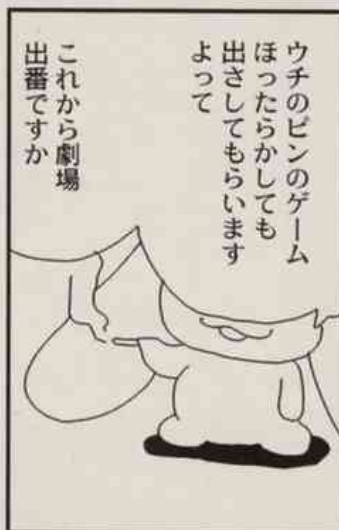 ウチのピンのゲーム
ほったらかしても
出さしてもらいます
よって
これから劇場
出番ですか